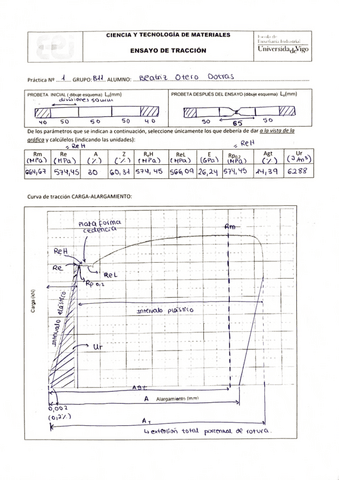 CIENCIA Y TECNOLOGÍA DE MATERIALES
ENSAYO DE TRACCIÓN
Escuela de
Enseñanza Industrial
Universida de Vigo
Práctica Nº 1 GRUPO B11 ALUMNO: Beatriz Otero
PROBETA INICIAL (dibuje esquema) L₀(mm)
PROBETA DESPUÉS DEL ENSAYO (dibuje esquema) Lᵤ(mm)
divisiones
40 50 50 50 40
50 65 50
De los parámetros que se indican a continuación, seleccione únicamente los que debería de dar a la vista de la
gráfica y calcúlelos (indicando las unidades):
ReH ReH
Rm Re A Z ReH ReL E Rp0,2 Agt Ur
(MPa) (MPa) (%) (%) (MPa) (MPa) (GPa) (MPa) (%)
664,67 574,45 30 60,31 574,45 566,09 26,24 574,45 14,39
Curva de tracción CARGA-ALARGAMIENTO:
plataforma
cedencia
Rm
ReH
Re
ReL
Rp 0,2
Carga (kN)
intervalo elástico
intervalo plástico
Ur
A Alargamiento (mm)
0,002
(0,2%)
At
extensión total porcentual de rotura.